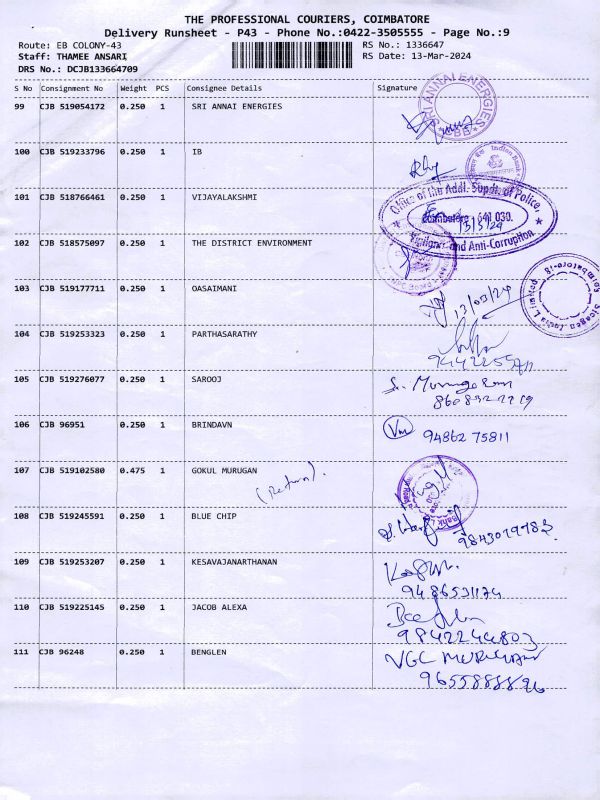 THE PROFESSIONAL COURIERS, COIMBATORE
Delivery Runsheet - P43 - Phone No.:0422-3505555 - Page No.:9
Route: EB COLONY-43
RS No.: 1336647
Staff: THAMEE ANSARI
RS Date: 13-Mar-2024
DRS No.: DCJB133664709
S No Consignment No Weight PCS Consignee Details Signature
99 CJB 519054172 0.250 1 SRI ANNAI ENERGIES
SRI ANNAI ENERGIES
100 CJB 519233796 0.250 1 IB
Indian Bank
101 CJB 518766461 0.250 1 VIJAYALAKSHMI
Office of the Addl. Supdt. of Police.
Coimbatore 641 030.
13/3/24
Vigilance and Anti-Corruption
102 CJB 518575097 0.250 1 THE DISTRICT ENVIRONMENT
103 CJB 519177711 0.250 1 OASAIMANI
13/03/24
104 CJB 519253323 0.250 1 PARTHASARATHY
105 CJB 519276077 0.250 1 SAROOJ
106 CJB 96951 0.250 1 BRINDAVN
94862 75811
107 CJB 519102580 0.475 1 GOKUL MURUGAN
(Return).
108 CJB 519245591 0.250 1 BLUE CHIP
109 CJB 519253207 0.250 1 KESAVAJANARTHANAN
110 CJB 519225145 0.250 1 JACOB ALEXA
9842244803
111 CJB 96248 0.250 1 BENGLEN